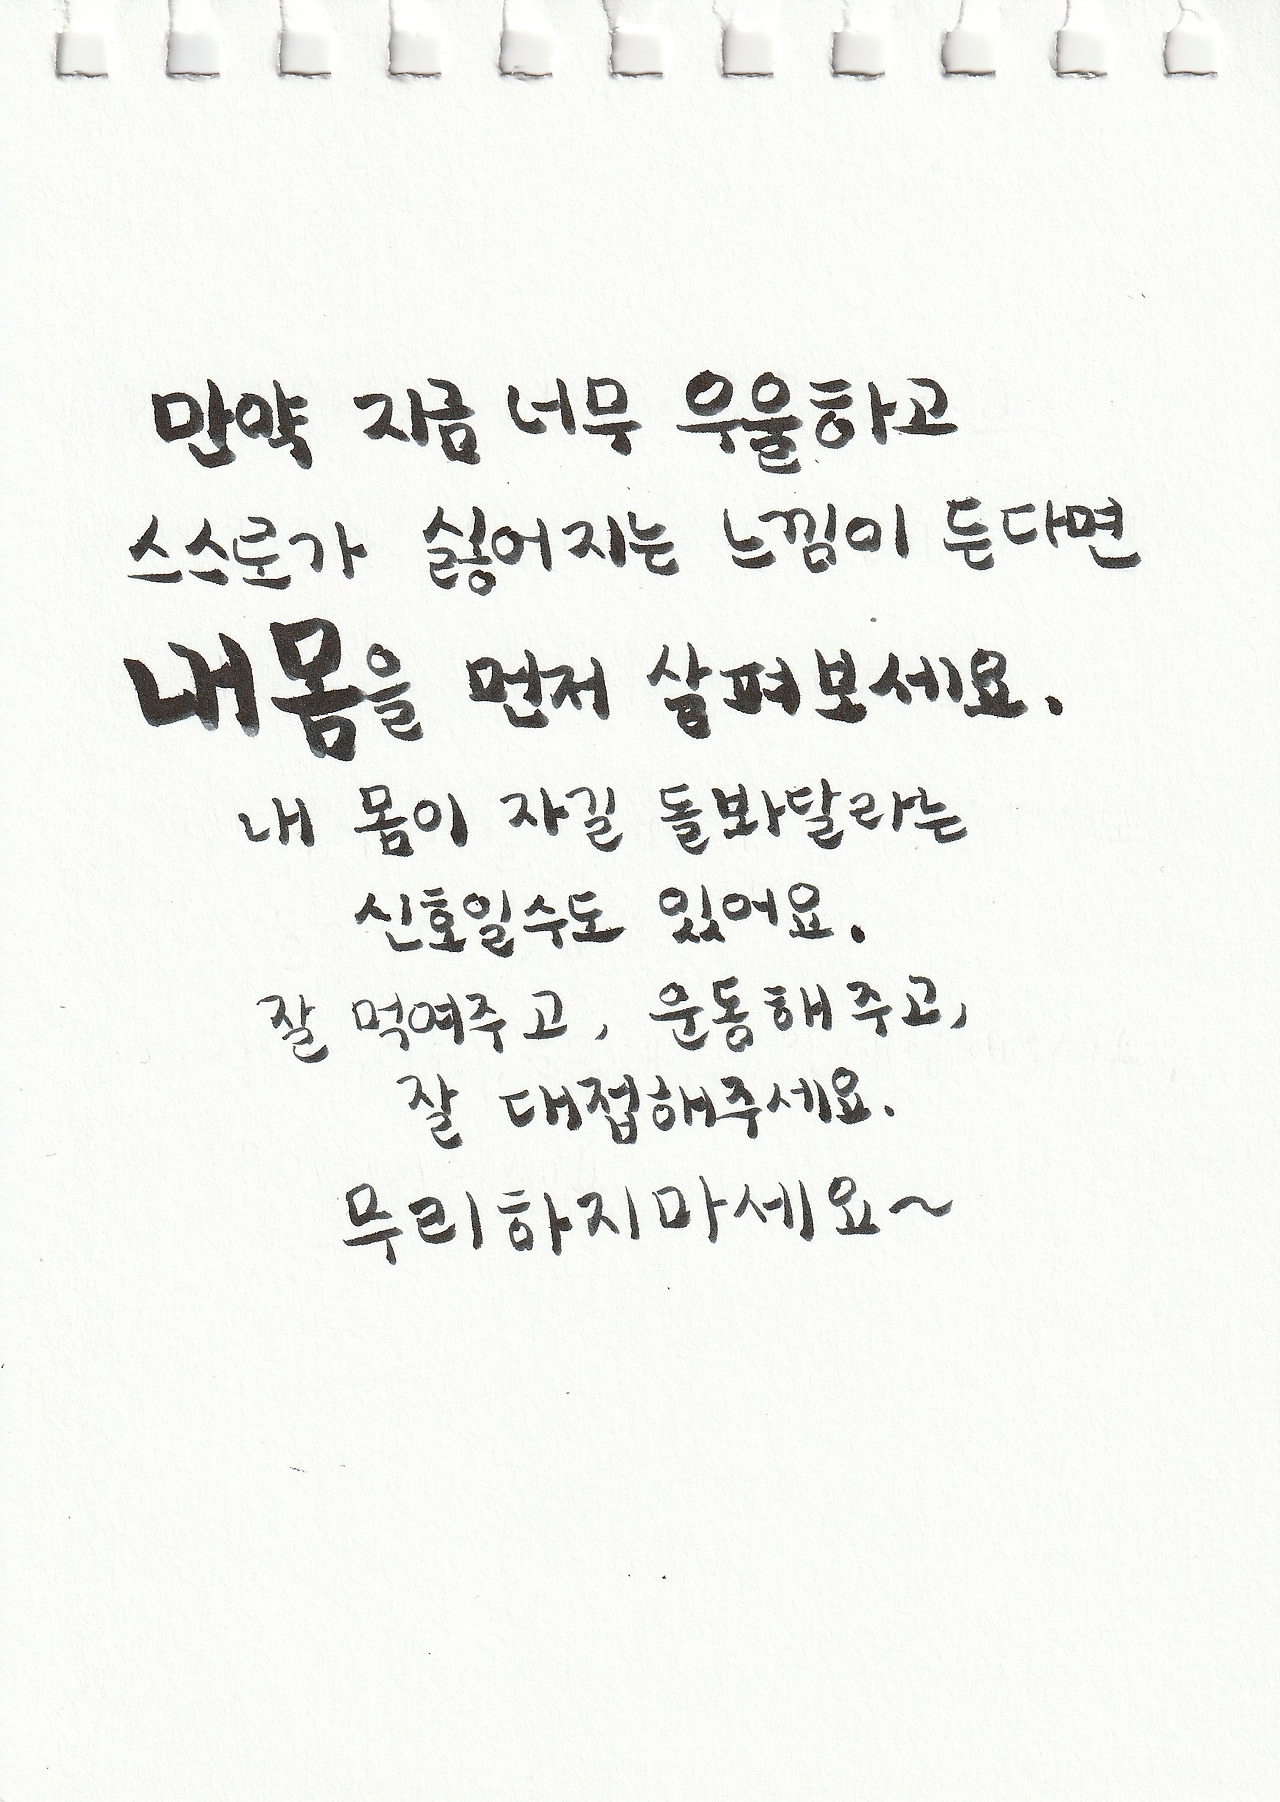 만약 지금 너무 우울하고
스스로가 싫어지는 느낌이 든다면
내몸을 먼저 살펴보세요.
내 몸이 자길 돌봐달라는
신호일수도 있어요.
잘 먹여주고, 운동해주고,
잘 대접해주세요.
무리하지마세요~